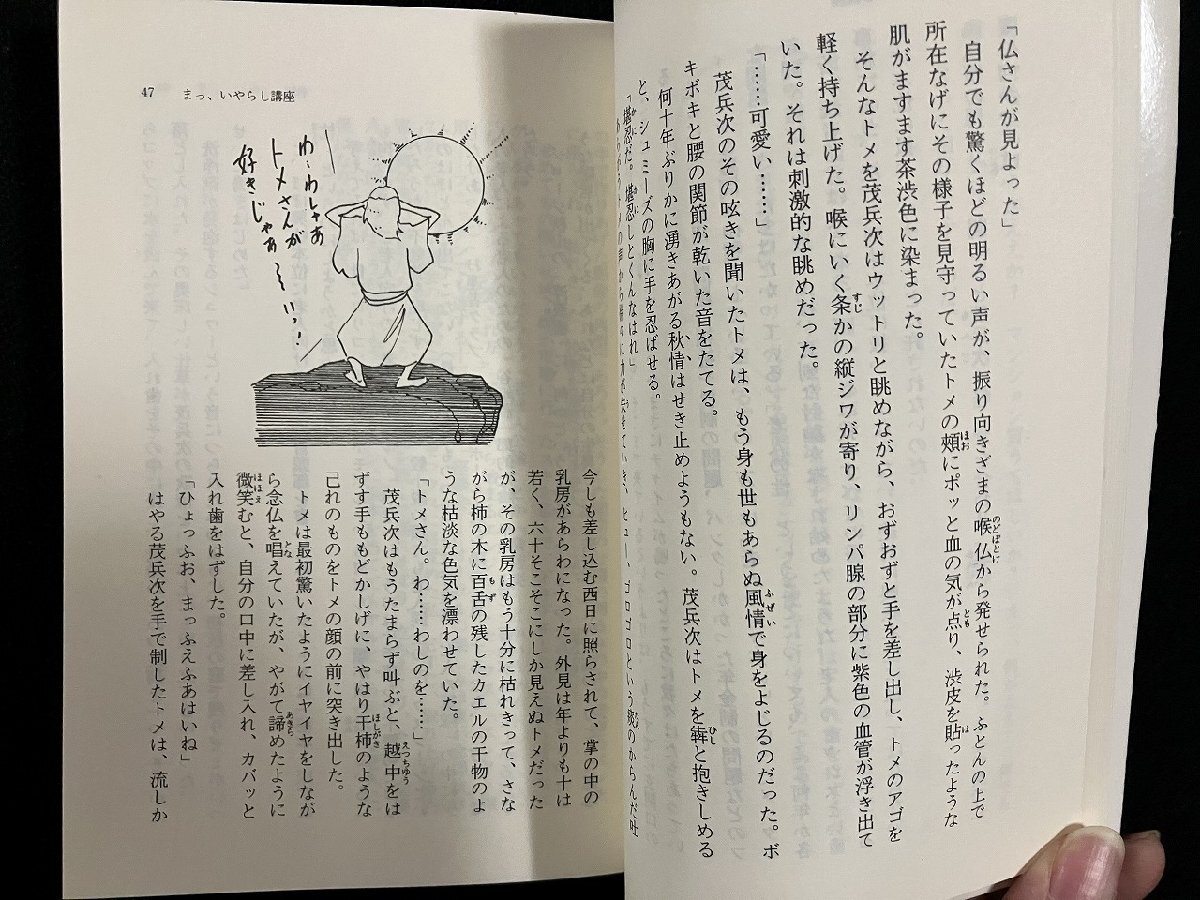 「仏さんが見よった」
自分でも驚くほどの明るい声が、振り向きざまの喉仏から発せられた。ふとんの上で
所在なげにその様子を見守っていたトメの頰にポッと血の気が点り、渋皮を貼ったような
肌がますます茶渋色に染まった。
そんなトメを茂兵次はウットリと眺めながら、おずおずと手を差し出し、トメのアゴを
軽く持ち上げた。喉にいく条かの縦ジワが寄り、リンパ腺の部分に紫色の血管が浮き出て
いた。それは刺激的な眺めだった。
「……可愛い……」
茂兵次のその呟きを聞いたトメは、もう身も世もあらぬ風情で身をよじるのだった。ボ
キボキと腰の関節が乾いた音をたてる。
何十年ぶりかに湧きあがる秋情はせき止めようもない。茂兵次はトメを犇と抱きしめる
と、シュミーズの胸に手を忍ばせる。
「堪忍だ。堪忍しとくんなはれ」
ゴロゴロという痰のからんだ吐
今しも差し込む西日に照らされて、掌の中の
乳房があらわになった。外見は年よりも十は
若く、六十そこそこにしか見えぬトメだった
が、その乳房はもう十分に枯れきって、さな
がら柿の木に百舌の残したカエルの干物のよ
うな枯淡な色気を漂わせていた。
「トメさん。わ……わしのを……」
茂兵次はもうたまらず叫ぶと、越中をは
ずす手ももどかしげに、やはり干柿のような
己れのものをトメの顔の前に突き出した。
トメは最初驚いたようにイヤイヤをしなが
ら念仏を唱えていたが、やがて諦めたように
微笑むと、自分の口中に差し入れ、カバッと
入れ歯をはずした。
「ひょっふお、まっふえふあはいね」
はやる茂兵次を手で制したトメは、流しか
わーわしゃあ
トメさんが
好きじゃあ〜〜い!!
47 まっ、いやらし講座